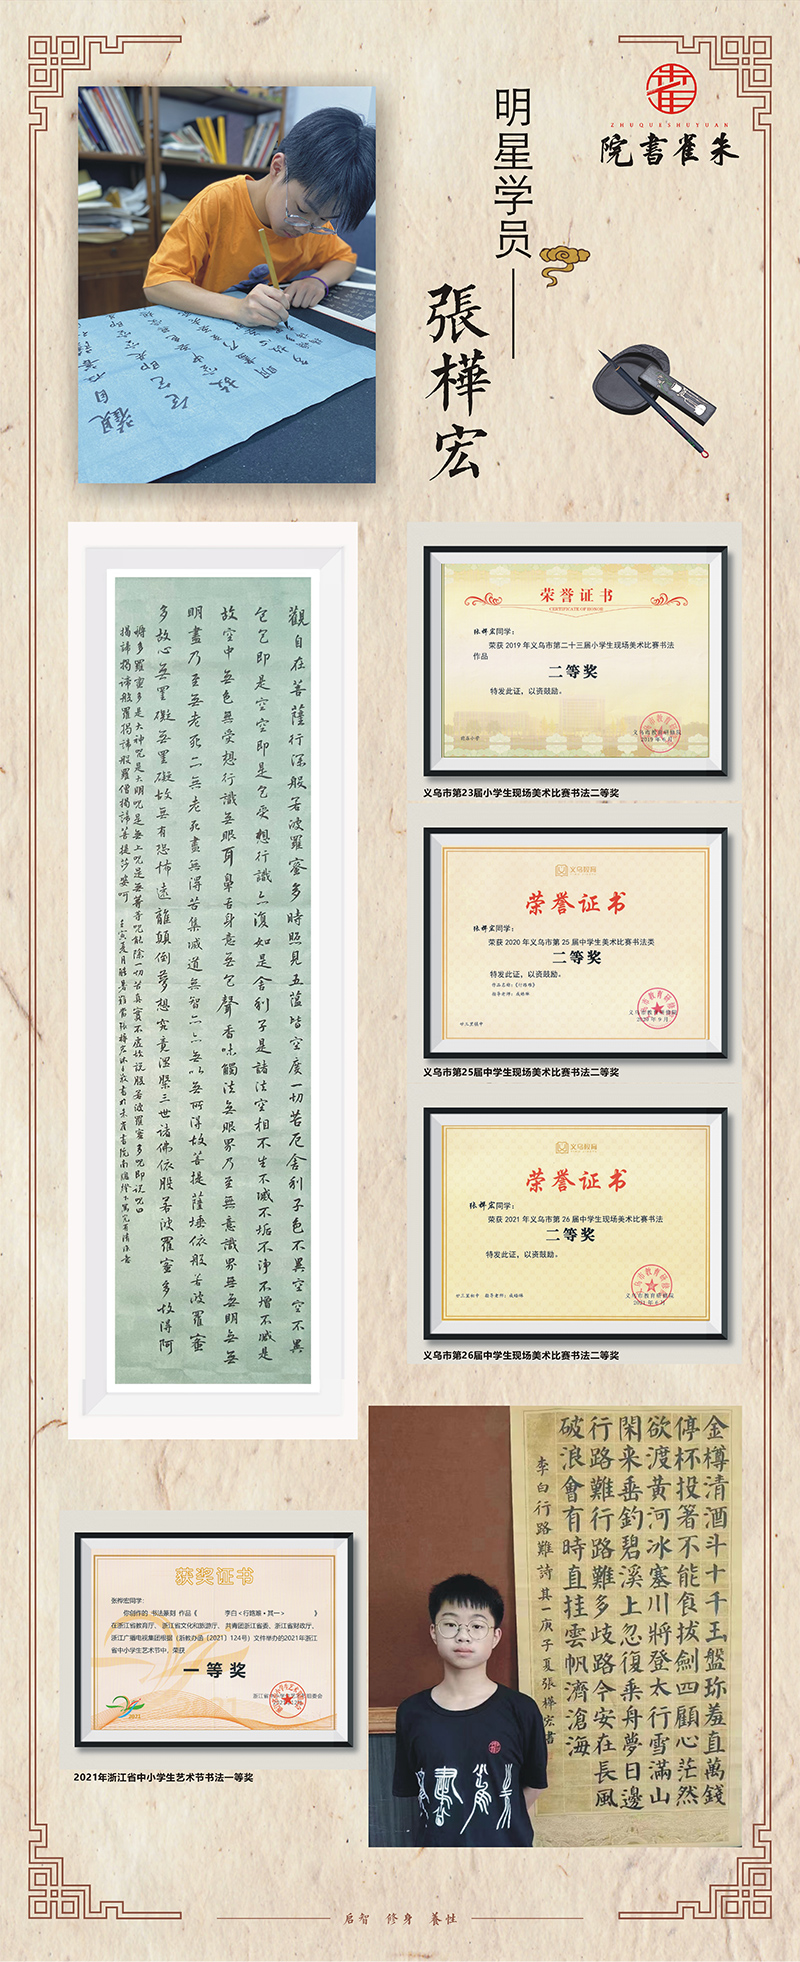 ZHUQUESHUYUAN
朱雀書院
明星学员——
張樺宏
觀自在菩薩行深般若波羅蜜多時照見五蘊皆空度一切苦厄舍利子色不異空空不異
色色即是空空即是色受想行識亦復如是舍利子是諸法空相不生不滅不垢不淨不增不減是
故空中無色無受想行識無眼耳鼻舌身意無色聲香味觸法無眼界乃至無意識界無無明無無
明盡乃至無老死亦無老死盡無得苦集滅道無智亦無得以無所得故菩提薩埵依般若波羅蜜
多故心無罣礙無罣礙故無有恐怖遠離顛倒夢想究竟涅槃三世諸佛依般若波羅蜜多故得阿
荣誉证书
CERTIFICATE OF HONOR
张桦宏同学：
荣获2019年义乌市第二十三届小学生现场美术比赛书法
作品
二等奖
特发此证，以资鼓励。
义乌市教育研修院
2019年6月
义乌市第23届小学生现场美术比赛书法二等奖
义乌教育
荣誉证书
张桦宏同学：
荣获2020年义乌市第25届中学生美术比赛书法类
二等奖
特发此证，以资鼓励。
作品名称：《行路难》
义乌市教育研修院
2020年9月
廿三里镇中
义乌市第25届中学生现场美术比赛书法二等奖
义乌教育
荣誉证书
张桦宏同学：
荣获2021年义乌市第26届中学生现场美术比赛书法
二等奖
特发此证，以资鼓励。
义乌市教育研修院
2021年6月
义乌市第26届中学生现场美术比赛书法二等奖
获奖证书
张桦宏同学：
你创作的 书法篆刻 作品《 李白<行路难•其一> 》
在浙江省教育厅、浙江省文化和旅游厅、共青团浙江省委、浙江省财政厅、
浙江广播电视集团根据（浙教办函〔2021〕124号）文件举办的2021年浙江
省中小学生艺术节中，荣获
一等奖
2021年浙江省中小学生艺术节书法一等奖
金樽清酒斗十千玉盤珎羞直萬錢
停杯投箸不能食拔劍四顧心茫然
欲渡黄河冰塞川將登太行雪滿山
閑来垂釣碧溪上忽復乘舟夢日邊
行路難行路難多歧路今安在長風
破浪會有時直挂雲帆濟滄海
李白行路難詩其一庚子夏張樺宏書
启智 修身 養性